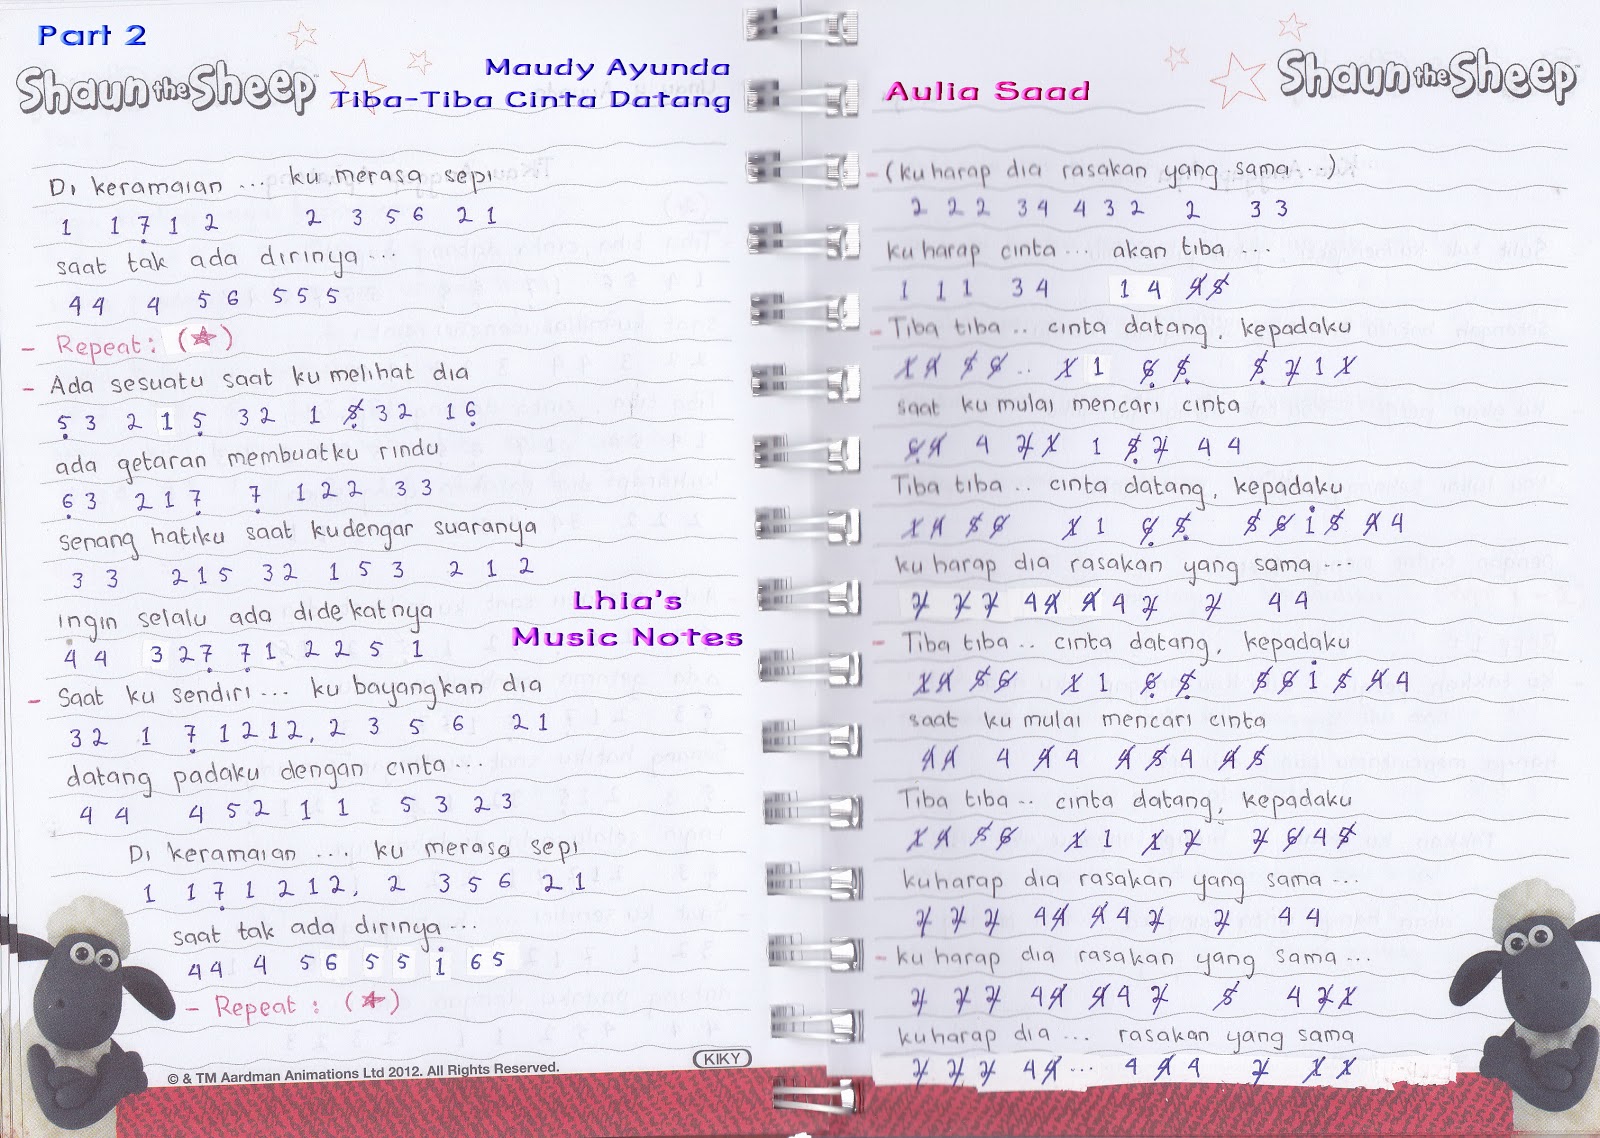 Part 2
Shaun the Sheep™
Maudy Ayunda
Tiba-Tiba Cinta Datang
Di keramaian ... ku merasa sepi
1 1 7̣ 1 2 2 3 5 6 2 1
saat tak ada dirinya ...
4 4 4 5 6 5 5 5
- Repeat : (☆)
- Ada sesuatu saat ku melihat dia
5̣ 3 2 1 5̣ 3 2 1 5̷̣ 3 2 1 6̣
ada getaran membuatku rindu
6̣ 3 2 1 7̣ 7̣ 1 2 2 3 3
senang hatiku saat kudengar suaranya
3 3 2 1 5 3 2 1 5 3 2 1 2
ingin selalu ada didekatnya
4 4 3 2 7̣ 7̣ 1 2 2 5 1
Lhia's
Music Notes
- Saat ku sendiri ... ku bayangkan dia
3 2 1 7̣ 1 2 1 2, 2 3 5 6 2 1
datang padaku dengan cinta ...
4 4 4 5 2 1 1 5 3 2 3
Di keramaian ... ku merasa sepi
1 1 7̣ 1 2 1 2, 2 3 5 6 2 1
saat tak ada dirinya ...
4 4 4 5 6 5 5 1̇ 6 5
- Repeat : (☆)
© & TM Aardman Animations Ltd 2012. All Rights Reserved.
KIKY
Aulia Saad
Shaun the Sheep™
- (ku harap dia rasakan yang sama ...)
2 2 2 3 4 4 3 2 2 3 3
ku harap cinta ... akan tiba ...
1 1 1 3 4 1 4 4̷ 5̷
- Tiba tiba .. cinta datang, kepadaku
1̷ 4̷ 5̷ 6̷ .. 1̷ 1 6̷̣ 5̷̣ 5̷̣ 2̷ 1 1̷
saat ku mulai mencari cinta
6̷̣ 4̷ 4 2̷ 1̷ 1 5̷̣ 2̷ 4 4
Tiba tiba .. cinta datang, kepadaku
1̷ 4̷ 5̷ 6̷ 1̷ 1 6̷̣ 5̷̣ 5̷ 6̷ 1̇ 5̷ 4̷ 4
ku harap dia rasakan yang sama ...
2̷ 2̷ 2̷ 4 4̷ 4̷ 4 2̷ 2̷ 4 4
- Tiba tiba .. cinta datang, kepadaku
1̷ 4̷ 5̷ 6̷ 1̷ 1 6̷̣ 5̷̣ 5̷ 6̷ 1̇ 5̷ 4̷ 4
saat ku mulai mencari cinta
4̷ 4̷ 4 4̷ 4 4̷ 5̷ 4 4̷ 5̷
Tiba tiba .. cinta datang, kepadaku
1̷ 4̷ 5̷ 6̷ 1̷ 1 1̷ 2̷ 2̷ 6̷ 4 5̷
ku harap dia rasakan yang sama ...
2̷ 2̷ 2̷ 4 4̷ 4̷ 4 2̷ 2̷ 4 4
- ku harap dia rasakan yang sama ...
2̷ 2̷ 2̷ 4 4̷ 4̷ 4 2̷ 5̷ 4 2̷ 1̷
ku harap dia ... rasakan yang sama
2̷ 2̷ 2̷ 4 4̷ ... 4 4̷ 4 2̷ 1̷ 1̷